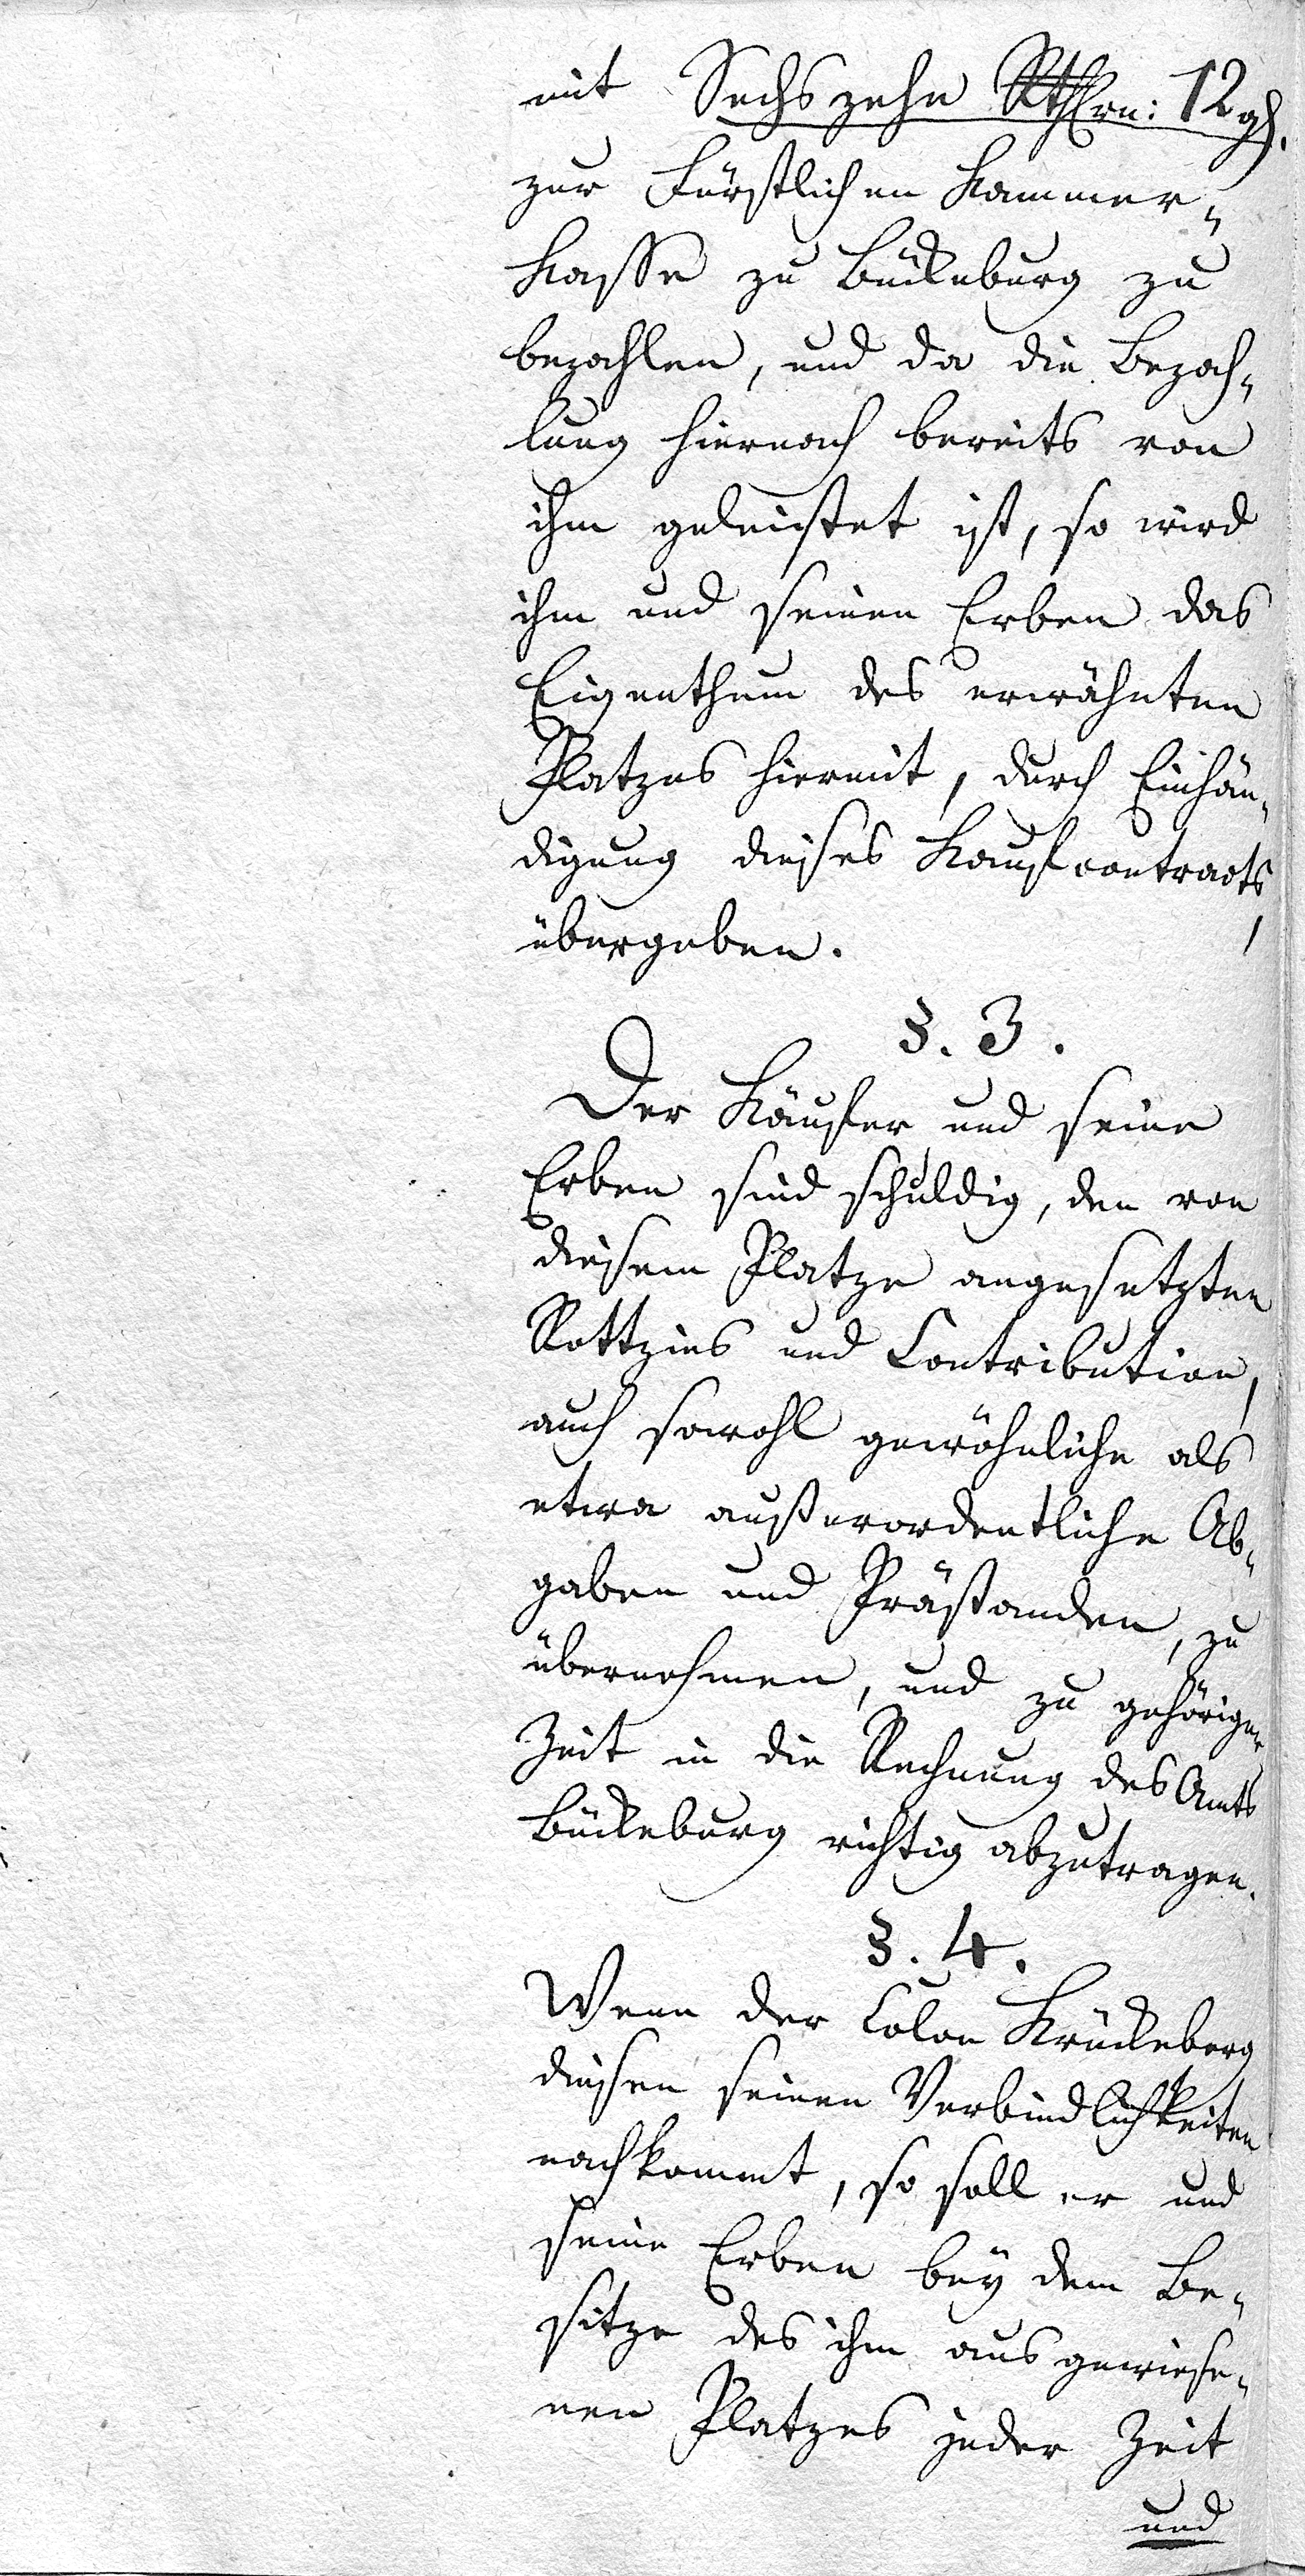 mit Sechszehn Rthlrn: 12 gl.
zur Fürstlichen Kammer„
Kasse zu Bückeburg zu
bezahlen, und da die Bezah„
lung hiernach bereits von
ihm geleistet ist, so wird
ihm und seinen Erben das
Eigenthum des erwähnten
Platzes hiermit, durch Einhän„
digung dieses Kaufcontracts,
übergeben.
§. 3.
Der Käufer und seine
Erben sind schuldig, den von
diesem Platze angesetzten
Rottzins und Contribution,
auch sowohl gewöhnliche als
etwa außerordentliche Ab„
gaben und Prästanden, zu
übernehmen, und zu gehöriger
Zeit in die Rechnung des Amts
Bückeburg richtig abzutragen.
§. 4.
Wenn der Colon Krückeberg
diesen seinen Verbindlichkeiten
nachkommt, so soll er und
seine Erben bey dem Be„
sitze des ihm ausgewiese„
nen Platzes jeder Zeit
und